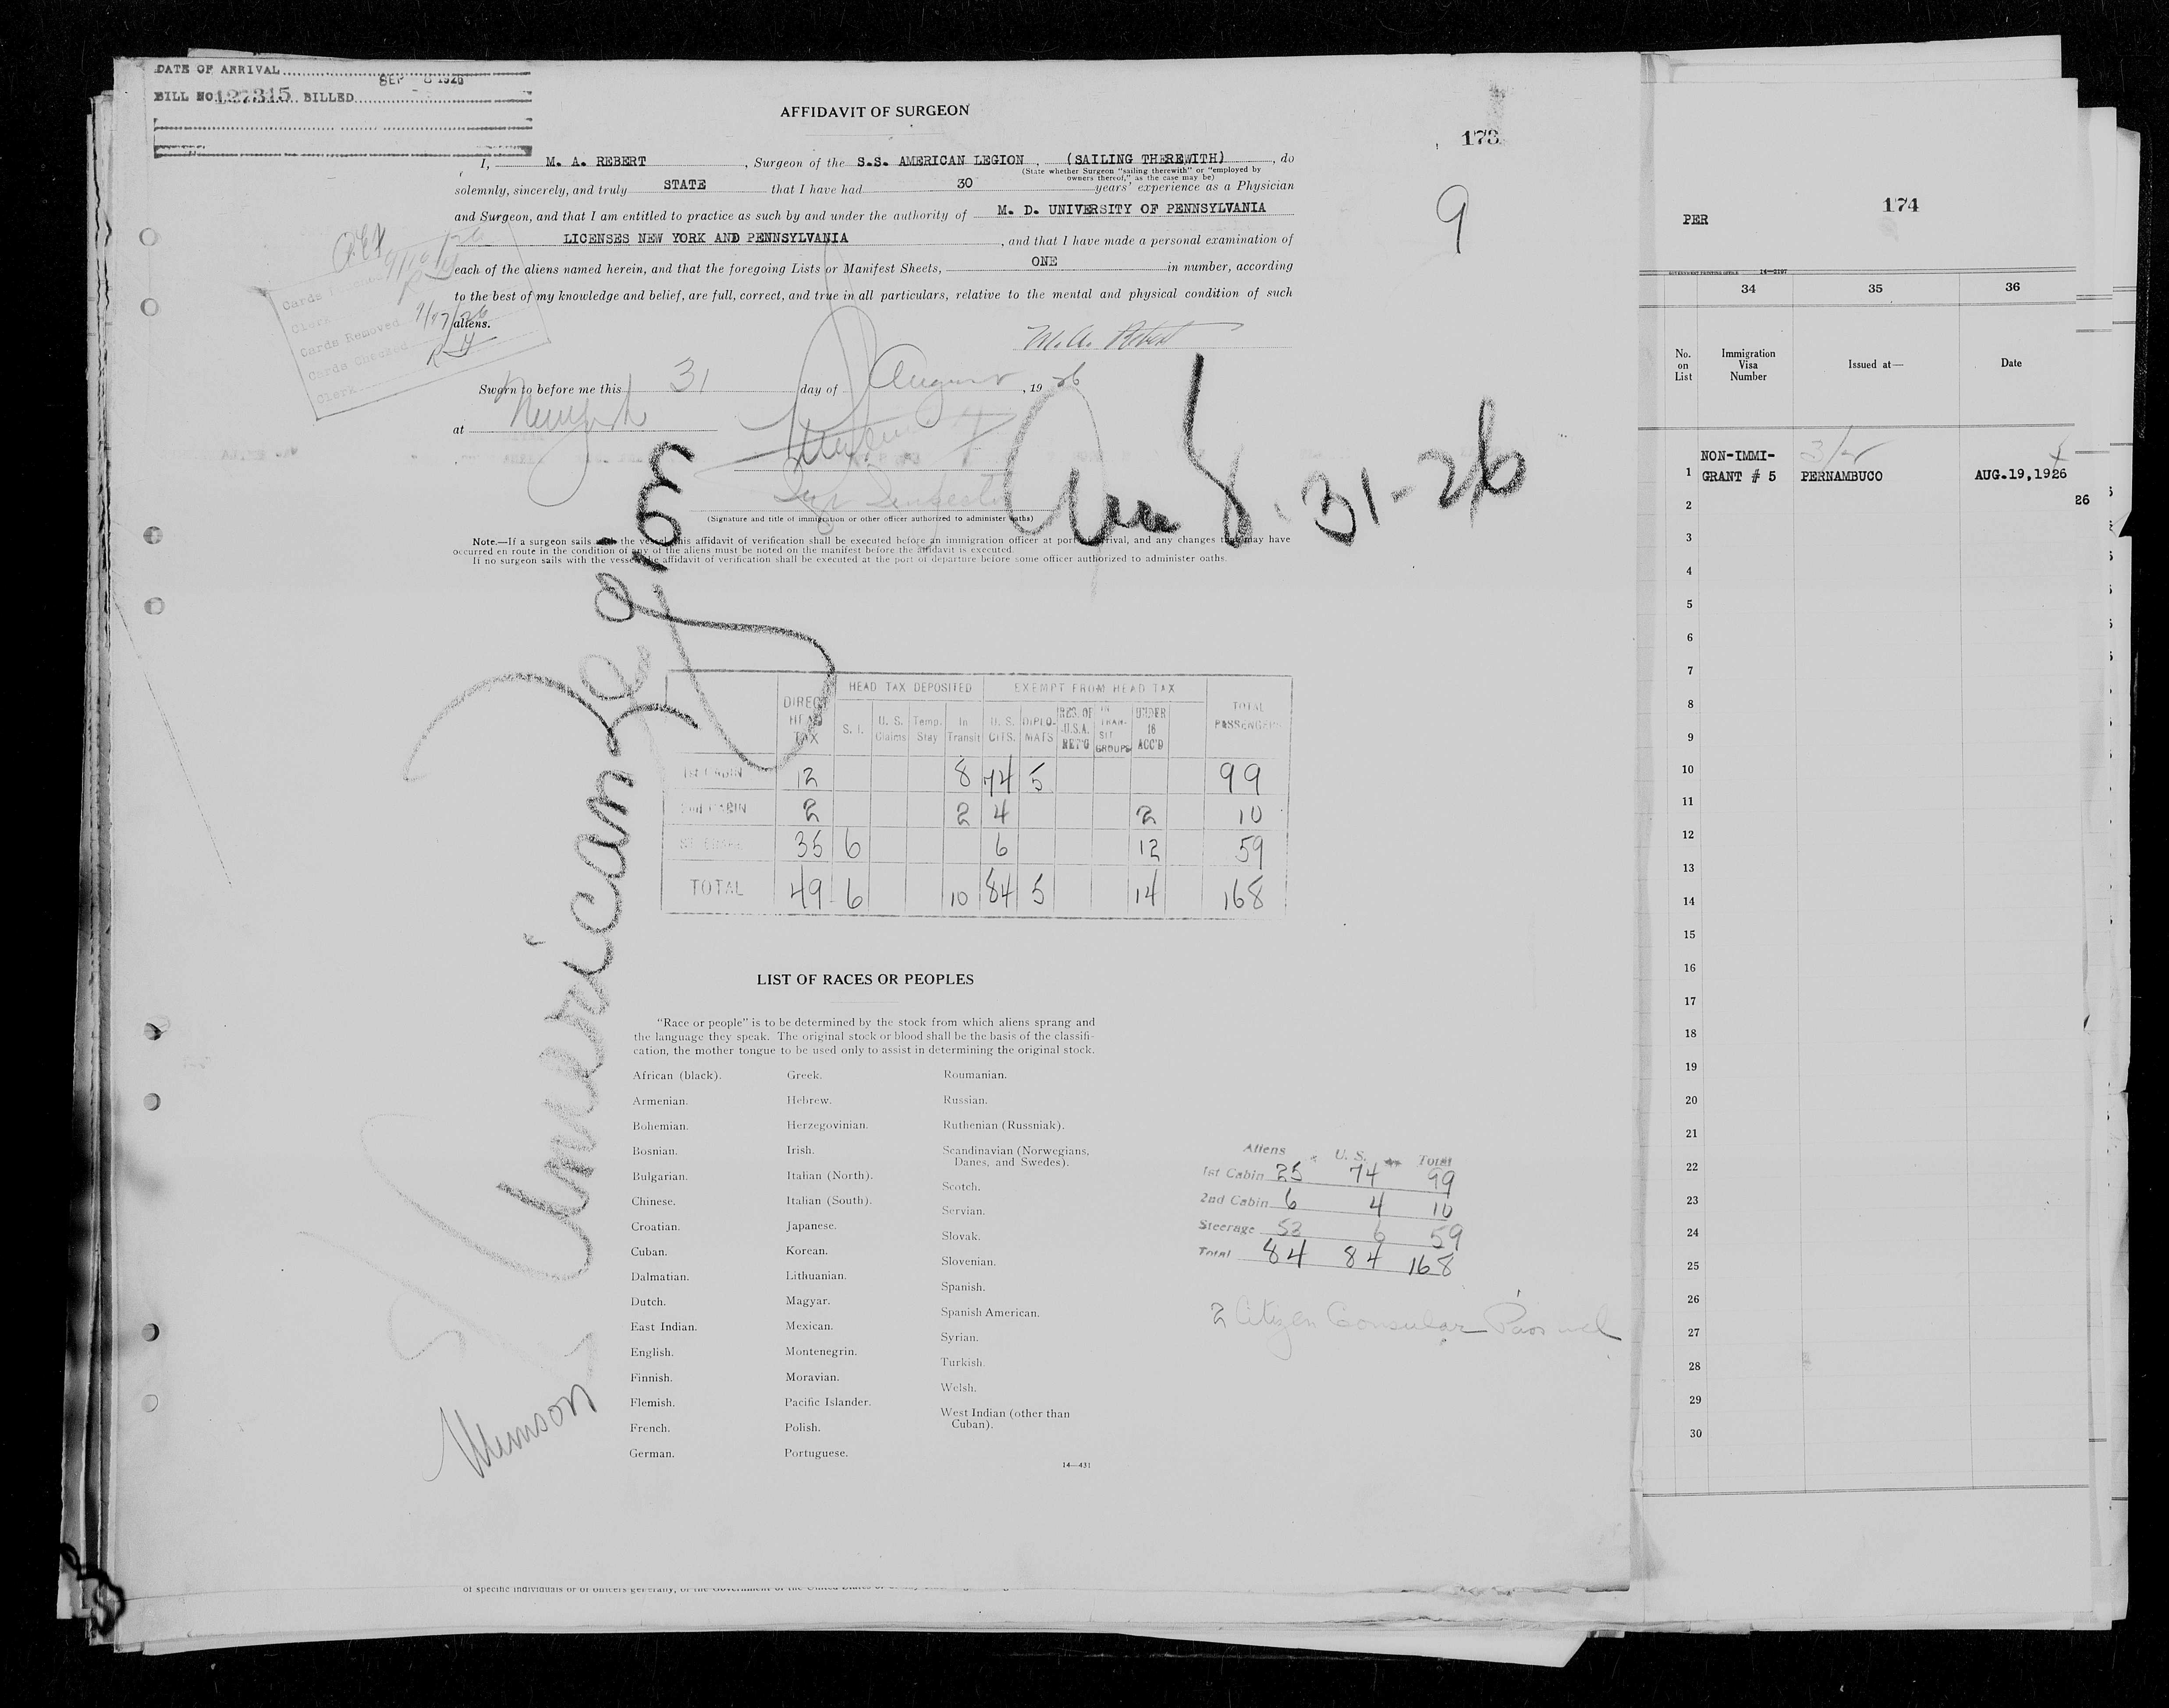 DATE OF ARRIVAL
SEP 1926
BILL NO. 127315 BILLED
AFFIDAVIT OF SURGEON
173
I, M. A. REBERT, Surgeon of the S.S. AMERICAN LEGION, (SAILING THEREWITH), do
(State whether Surgeon "sailing therewith" or "employed by
owners thereof," as the case may be)
solemnly, sincerely, and truly STATE that I have had 30 years' experience as a Physician
and Surgeon, and that I am entitled to practice as such by and under the authority of M. D. UNIVERSITY OF PENNSYLVANIA
LICENSES NEW YORK AND PENNSYLVANIA, and that I have made a personal examination of
each of the aliens named herein, and that the foregoing Lists or Manifest Sheets, ONE in number, according
to the best of my knowledge and belief, are full, correct, and true in all particulars, relative to the mental and physical condition of such
aliens.
9
Cards
Clerk
Cards Removed 9/17/26
Cards Checked
Clerk
M. A. Rebert
Sworn to before me this 31 day of August, 1926
at New York
(Signature and title of immigration or other officer authorized to administer oaths)
Aug. 31-26
Note.—If a surgeon sails with the vessel, this affidavit of verification shall be executed before an immigration officer at port of arrival, and any changes that may have
occurred en route in the condition of any of the aliens must be noted on the manifest before the affidavit is executed.
If no surgeon sails with the vessel, the affidavit of verification shall be executed at the port of departure before some officer authorized to administer oaths.
American Legion
Munson
DIRECT HEAD TAX HEAD TAX DEPOSITED EXEMPT FROM HEAD TAX TOTAL PASSENGERS
S. I. U. S. Claims Temp. Stay In Transit U. S. CITS. DIPLOMATS RES. OF U.S.A. RET'G IN TRANSIT GROUPS UNDER 16 ACC'D
1st CABIN 12 8 74 5 99
2nd CABIN 2 2 4 2 10
STEERAGE 35 6 6 12 59
TOTAL 49 6 10 84 5 14 168
LIST OF RACES OR PEOPLES
"Race or people" is to be determined by the stock from which aliens sprang and
the language they speak. The original stock or blood shall be the basis of the classifi-
cation, the mother tongue to be used only to assist in determining the original stock.
African (black).
Armenian.
Bohemian.
Bosnian.
Bulgarian.
Chinese.
Croatian.
Cuban.
Dalmatian.
Dutch.
East Indian.
English.
Finnish.
Flemish.
French.
German.
Greek.
Hebrew.
Herzegovinian.
Irish.
Italian (North).
Italian (South).
Japanese.
Korean.
Lithuanian.
Magyar.
Mexican.
Montenegrin.
Moravian.
Pacific Islander.
Polish.
Portuguese.
Roumanian.
Russian.
Ruthenian (Russniak).
Scandinavian (Norwegians,
Danes, and Swedes).
Scotch.
Servian.
Slovak.
Slovenian.
Spanish.
Spanish American.
Syrian.
Turkish.
Welsh.
West Indian (other than
Cuban).
14—431
Aliens U. S. Total
1st Cabin 25 74 99
2nd Cabin 6 4 10
Steerage 53 6 59
Total 84 84 168
2 Citizen Consular
PER
174
34 35 36
No.
on
List
Immigration
Visa
Number
Issued at—
Date
1 NON-IMMI-
GRANT # 5 PERNAMBUCO AUG.19,1926
26
2
3
4
5
6
7
8
9
10
11
12
13
14
15
16
17
18
19
20
21
22
23
24
25
26
27
28
29
30